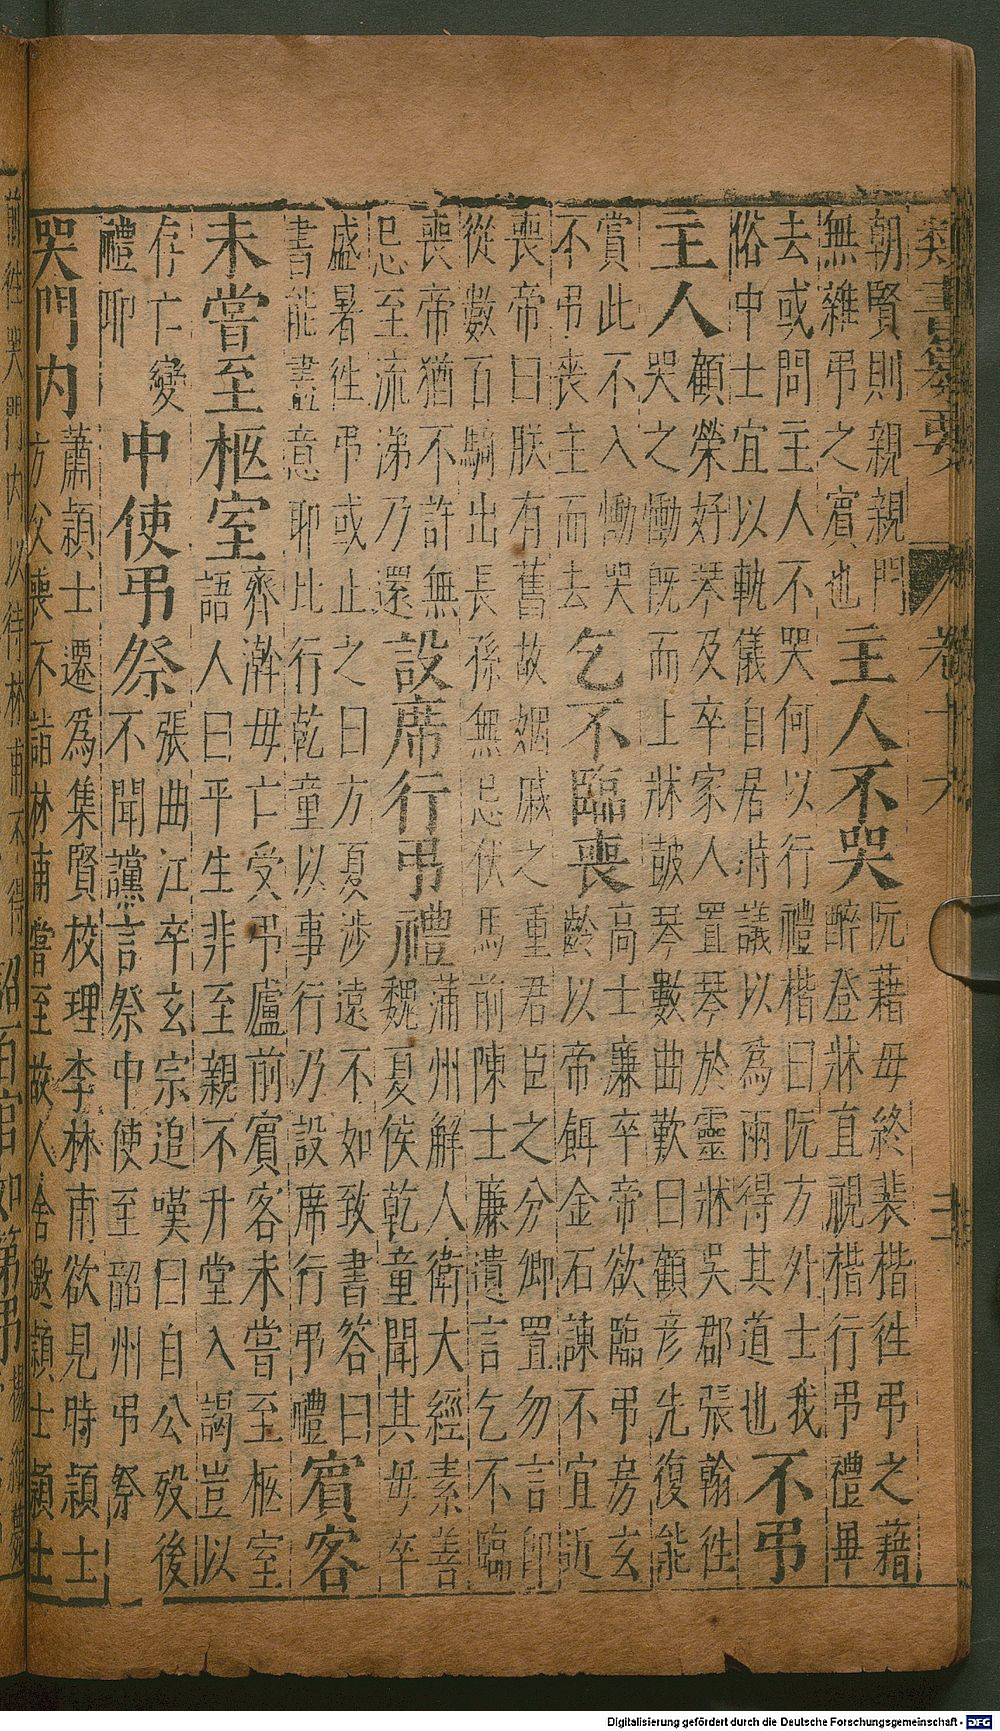 類書纂要 卷十六
朝賢則親親門主人不哭阮藉母終裴楷徃弔之藉
無雜弔之賓也醉登牀直視楷行弔禮畢
去或問主人不哭何以行禮楷曰阮方外士我
俗中士宜以軌儀自居時議以為兩得其道也不弔
主人顧榮好琴及卒家人置琴於靈牀吳郡張翰徃
哭之慟旣而上牀鼓琴數曲歎曰顧彦先復能
賞此不入慟哭乞不臨喪高士廉卒帝欲臨弔房玄
不弔喪主而去齡以帝餌金石諫不宜近
喪帝曰朕有舊故姻戚之重君臣之分卿置勿言卽
從數百騎出長孫無忌伏馬前陳士廉遺言乞不臨
喪帝猶不許無設席行弔禮蒲州解人衛大經素善
忌至流涕乃還魏夏侯乾童聞其母卒
盛暑徃弔或止之曰方夏涉遠不如致書答曰
書能盡意耶比行乾童以事行乃設席行弔禮賓客
未嘗至柩室齊澣母亡受弔廬前賓客未嘗至柩室
語人曰平生非至親不升堂入謁豈以
存亡變中使弔祭張曲江卒玄宗追嘆曰自公殁後
禮耶不聞讜言祭中使至韶州弔祭
哭門內蕭穎士遷為集賢校理李林甫欲見時穎士
方父喪不詣林甫嘗至故人舍邀穎士穎士
前徃哭門內以待林甫不得
Digitalisierung gefördert durch die Deutsche Forschungsgemeinschaft - DFG